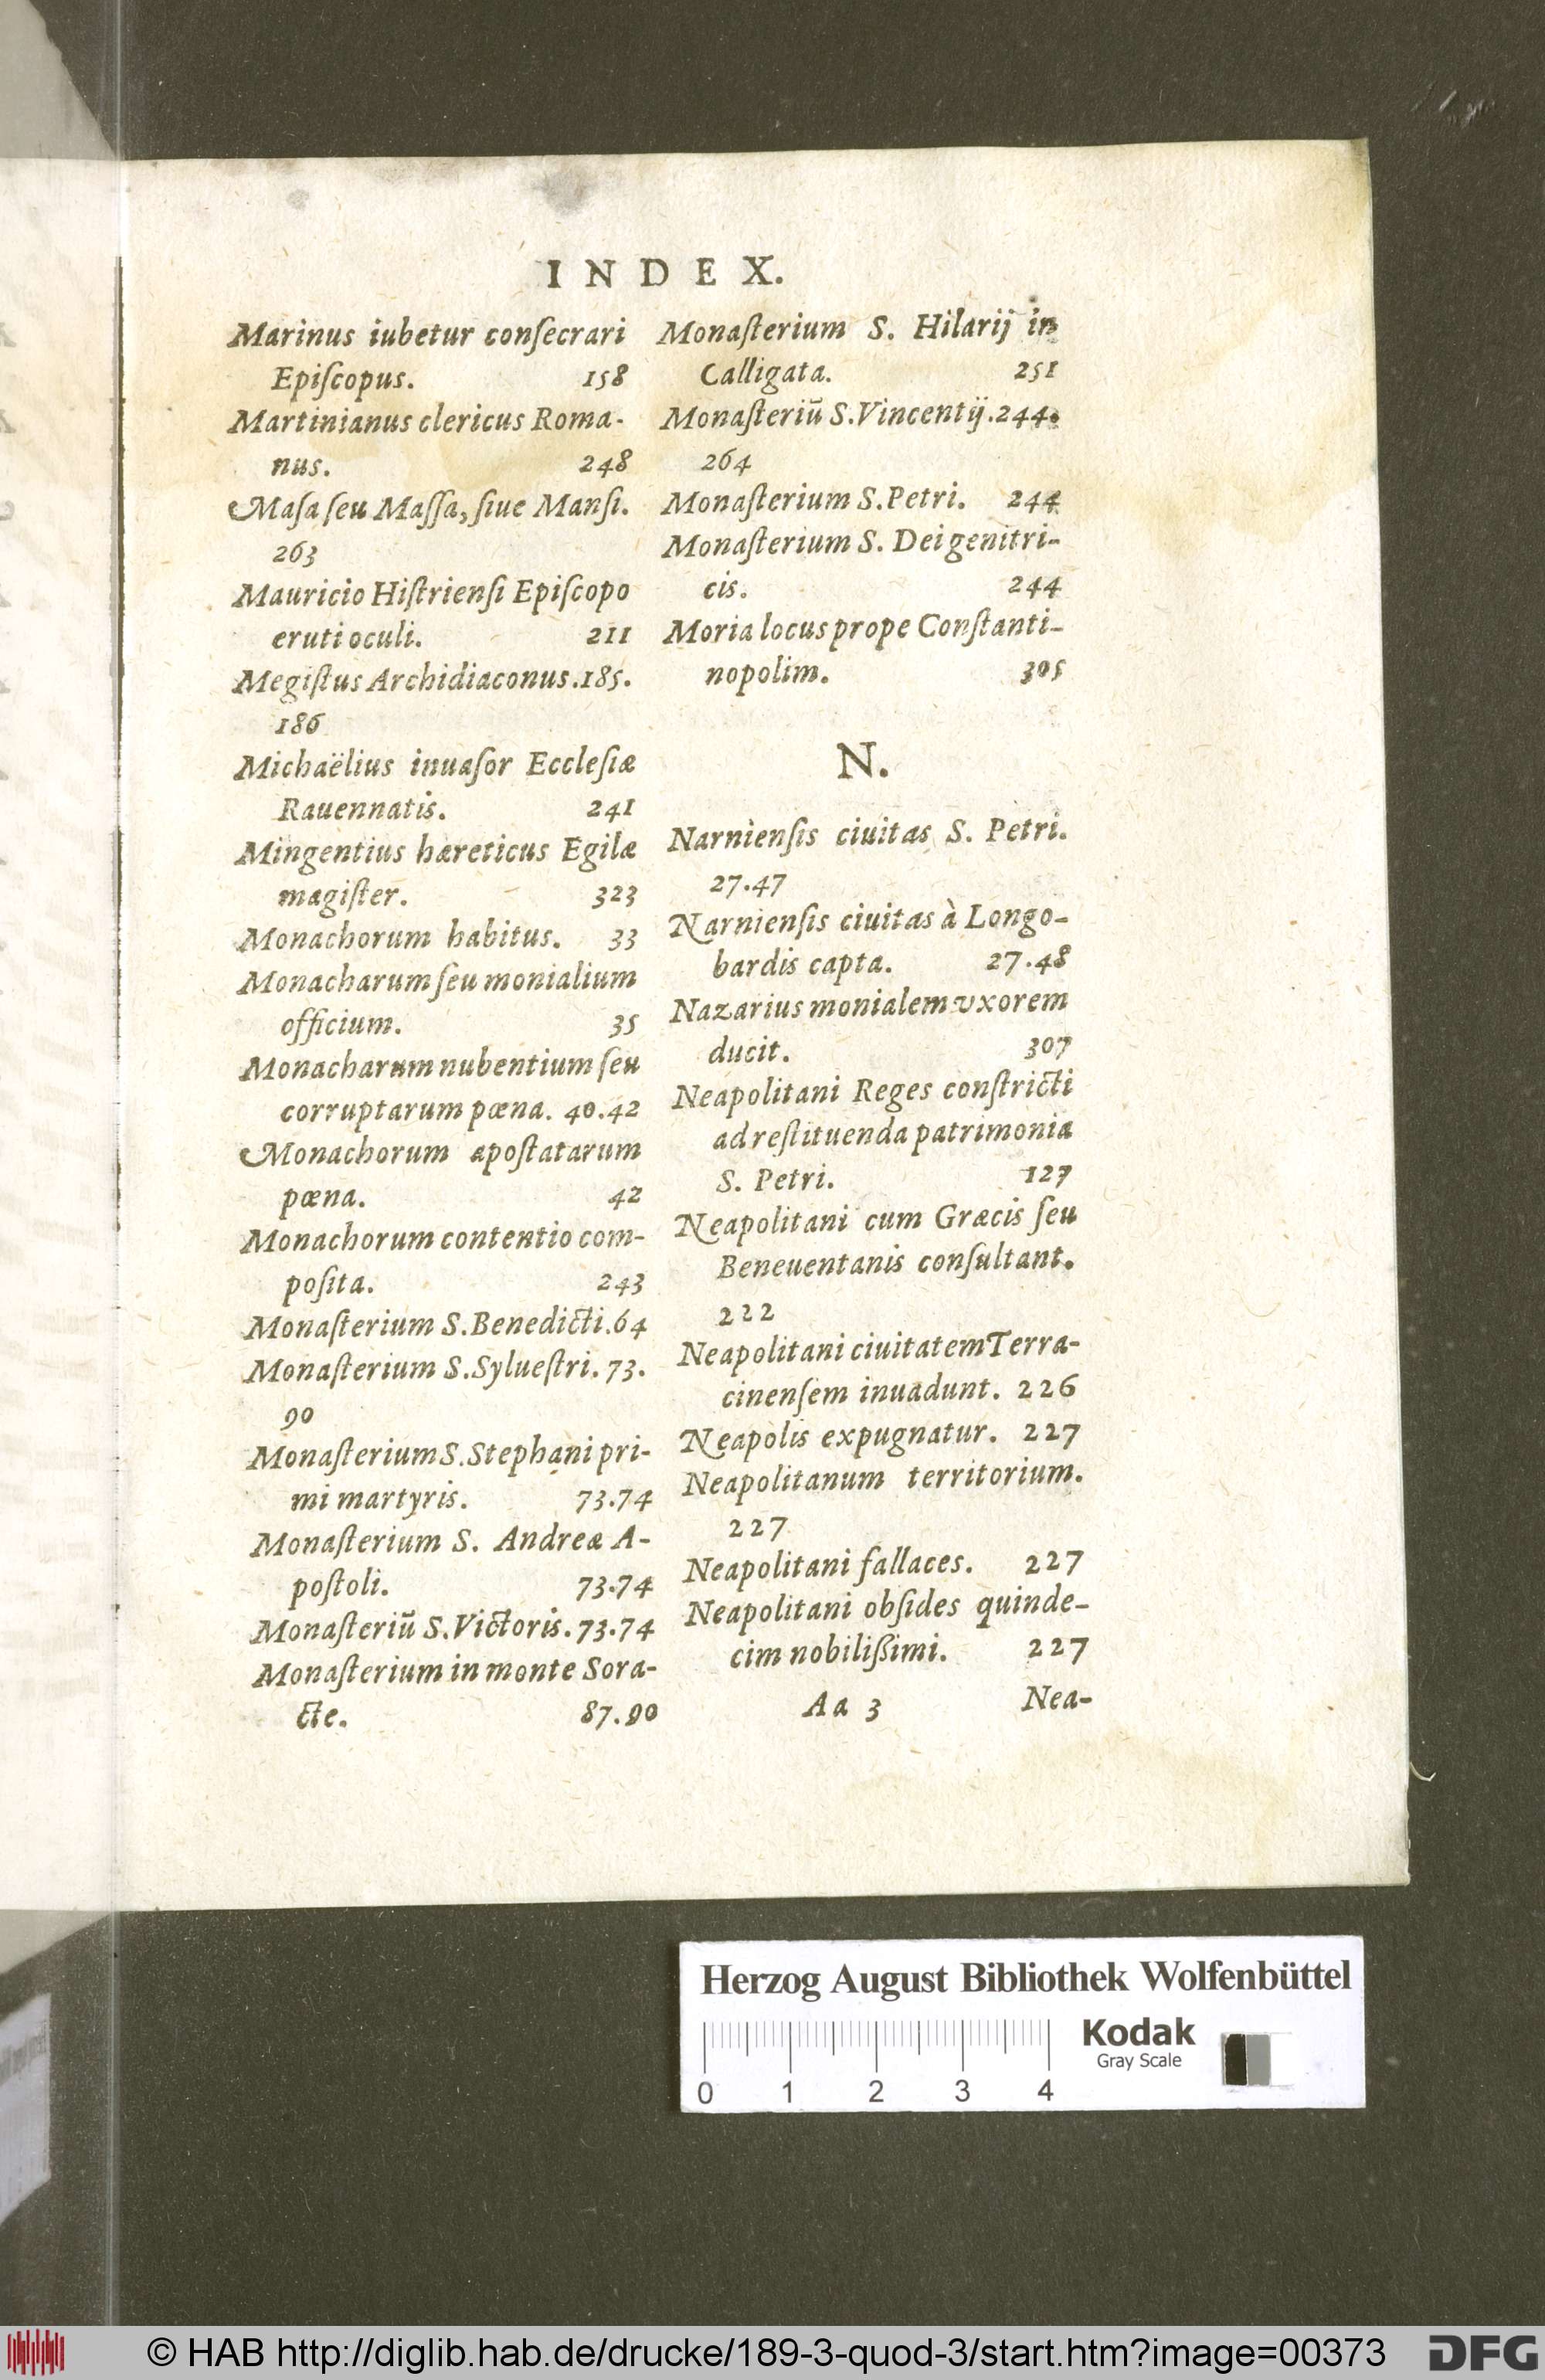 INDEX.
Marinus iubetur conſecrari
Epiſcopus. 158
Martinianus clericus Roma-
nus. 248
Maſa ſeu Maſſa, ſiue Manſi.
263
Mauricio Hiſtrienſi Epiſcopo
eruti oculi. 211
Megiſtus Archidiaconus. 185.
186
Michaëlius inuaſor Eccleſiæ
Rauennatis. 241
Mingentius hæreticus Egilæ
magiſter. 323
Monachorum habitus. 33
Monacharum ſeu monialium
officium. 35
Monacharum nubentium ſeu
corruptarum pœna. 40.42
Monachorum apoſtatarum
pœna. 42
Monachorum contentio com-
poſita. 243
Monaſterium S. Benedicti. 64
Monaſterium S. Sylueſtri. 73.
90
Monaſterium S. Stephani pri-
mi martyris. 73.74
Monaſterium S. Andreæ A-
poſtoli. 73.74
Monaſteriū S. Victoris. 73.74
Monaſterium in monte Sora-
cte. 87.90
Monaſterium S. Hilarij in
Calligata. 251
Monaſteriū S. Vincentij. 244.
264
Monaſterium S. Petri. 244
Monaſterium S. Dei genitri-
cis. 244
Moria locus prope Conſtanti-
nopolim. 305
N.
Narnienſis ciuitas S. Petri.
27.47
Narnienſis ciuitas à Longo-
bardis capta. 27.48
Nazarius monialem vxorem
ducit. 307
Neapolitani Reges conſtricti
ad reſtituenda patrimonia
S. Petri. 127
Neapolitani cum Græcis ſeu
Beneuentanis conſultant.
222
Neapolitani ciuitatem Terra-
cinenſem inuadunt. 226
Neapolis expugnatur. 227
Neapolitanum territorium.
227
Neapolitani fallaces. 227
Neapolitani obſides quinde-
cim nobilißimi. 227
Aa 3 Nea-
Herzog August Bibliothek Wolfenbüttel
Kodak
Gray Scale
0 1 2 3 4
© HAB http://diglib.hab.de/drucke/189-3-quod-3/start.htm?image=00373 DFG